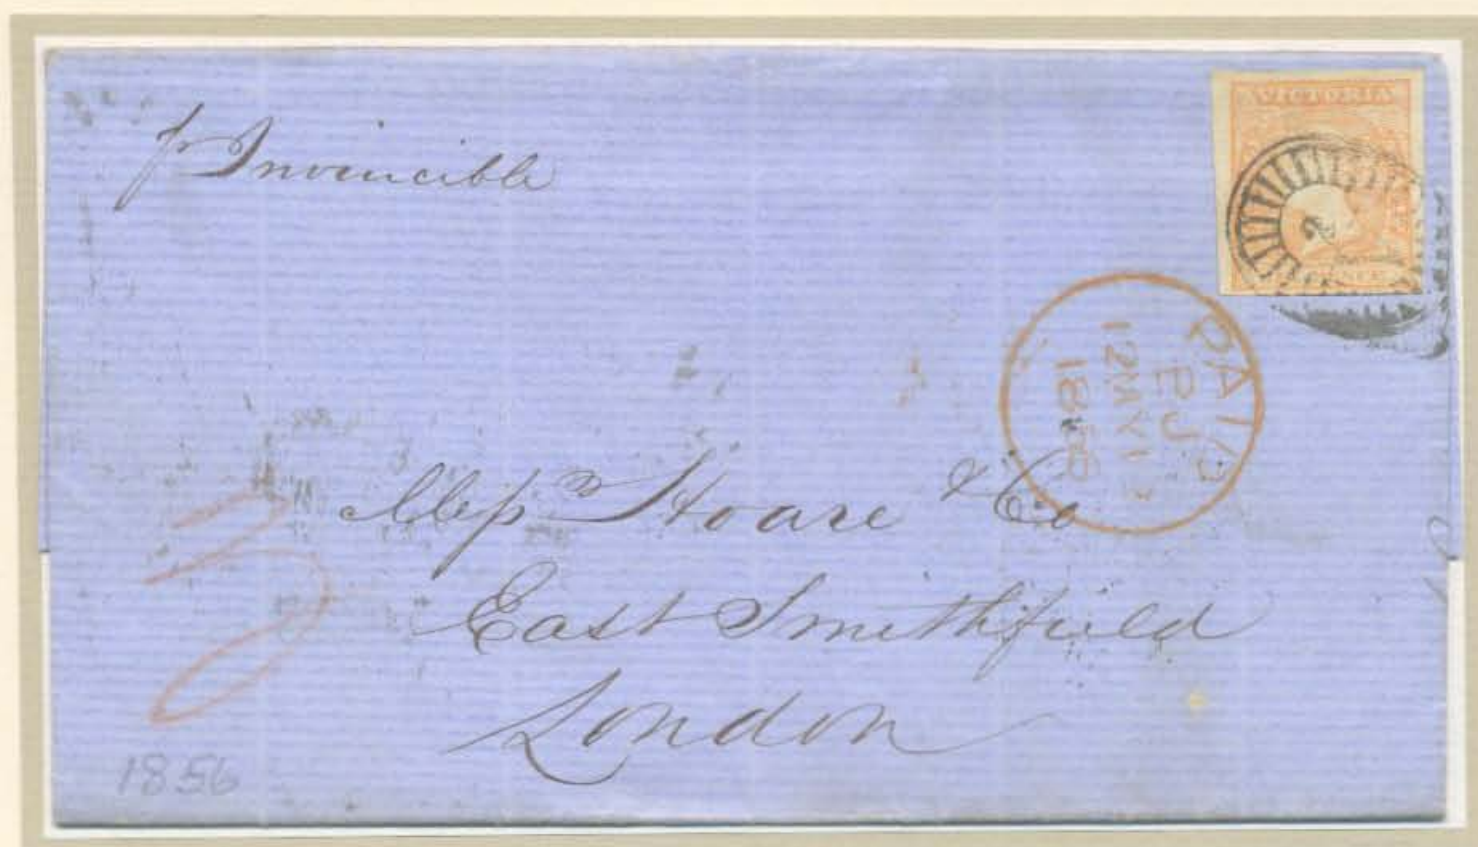 pr Invincible
VICTORIA
2
PENCE
PAID
PJ
12 MY 12
1856
Messrs Hoare & Co
East Smithfield
London
1856